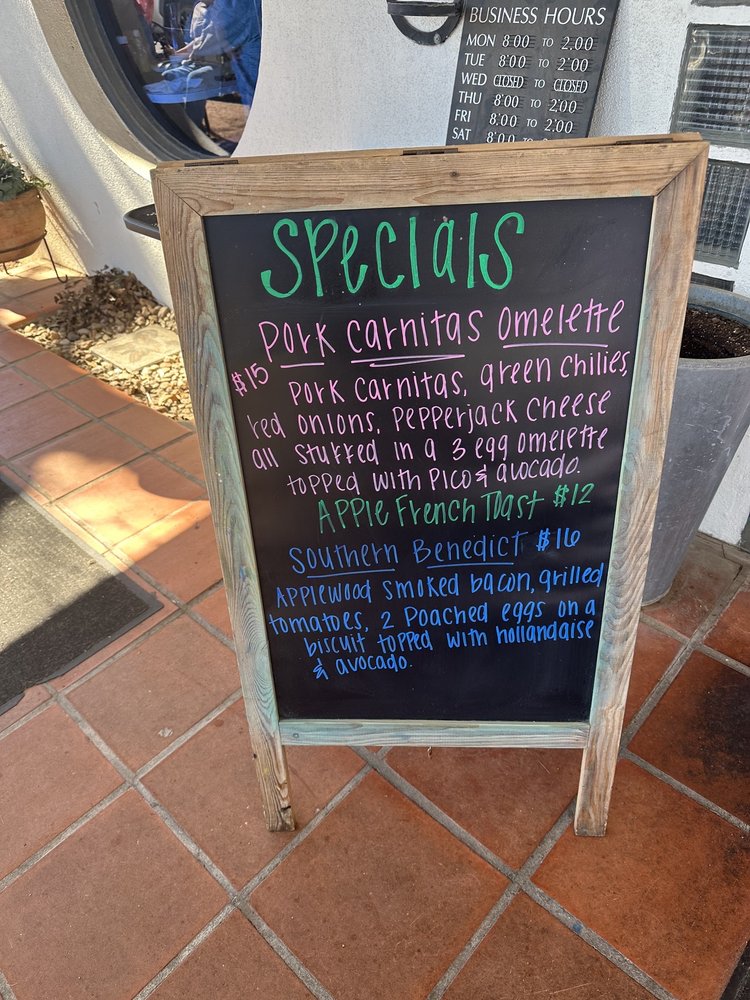 BUSINESS HOURS
MON 8:00 TO 2:00
TUE 8:00 TO 2:00
WED CLOSED TO CLOSED
THU 8:00 TO 2:00
FRI 8:00 TO 2:00
SAT 8:00
Specials
Pork Carnitas Omelette
$15
Pork Carnitas, green chilies,
red onions, Pepperjack Cheese
all stuffed in a 3 egg omelette
topped with Pico & avocado.
Apple French Toast $12
Southern Benedict $16
Applewood smoked bacon, grilled
tomatoes, 2 Poached eggs on a
biscuit topped with hollandaise
& avocado.